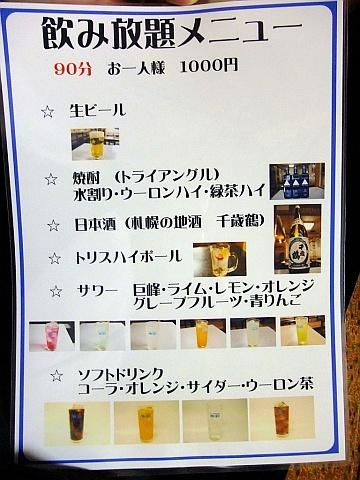 飲み放題メニュー
90分 お一人様 1000円
☆ 生ビール
☆ 焼酎 (トライアングル)
水割り・ウーロンハイ・緑茶ハイ
☆ 日本酒 (札幌の地酒 千歳鶴)
☆ トリスハイボール
☆ サワー 巨峰・ライム・レモン・オレンジ
グレープフルーツ・青りんご
☆ ソフトドリンク
コーラ・オレンジ・サイダー・ウーロン茶